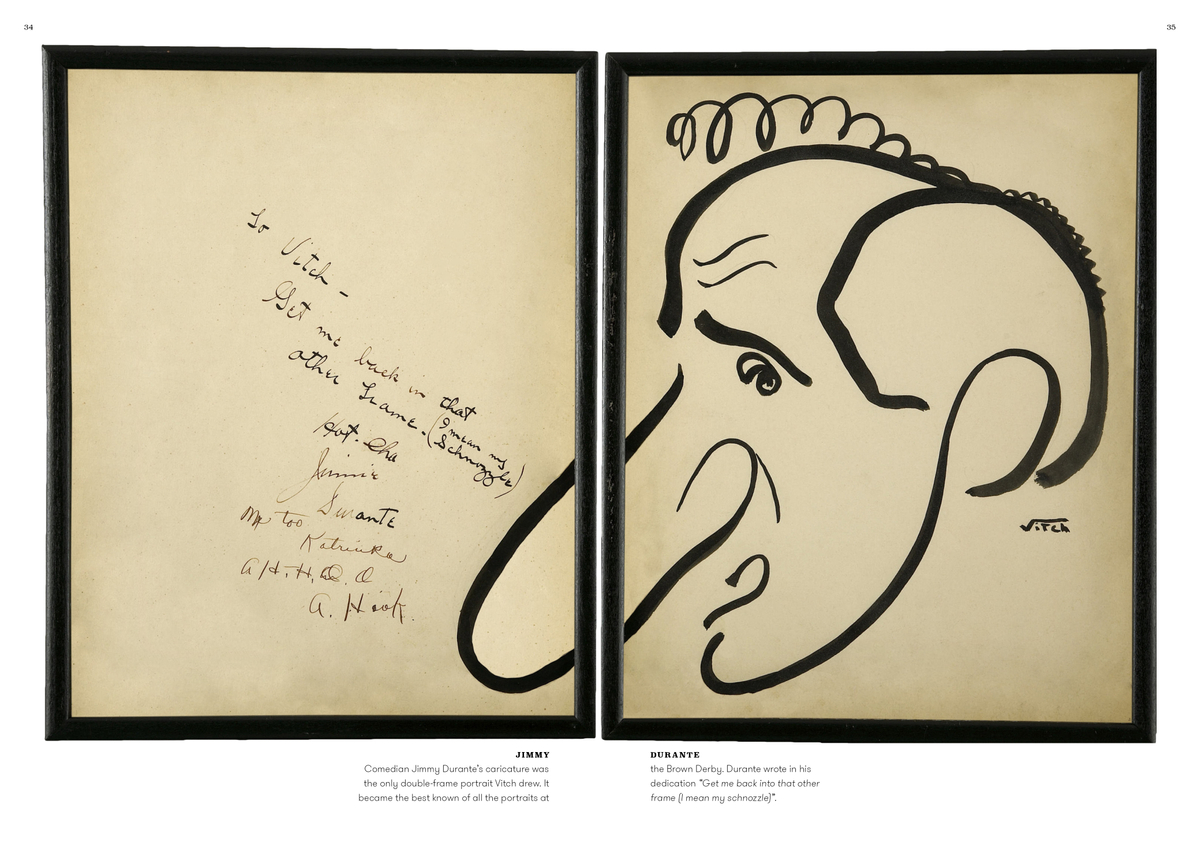 34
35
To Vitch -
Get me back in that
other Frame. (I mean my
Schnozzle)
Hot. Cha
Jimmie
Durante
Me too
Katrinka
A. Hook.
Vitch
JIMMY
Comedian Jimmy Durante's caricature was
the only double-frame portrait Vitch drew. It
became the best known of all the portraits at
DURANTE
the Brown Derby. Durante wrote in his
dedication "Get me back into that other
frame (I mean my schnozzle)".